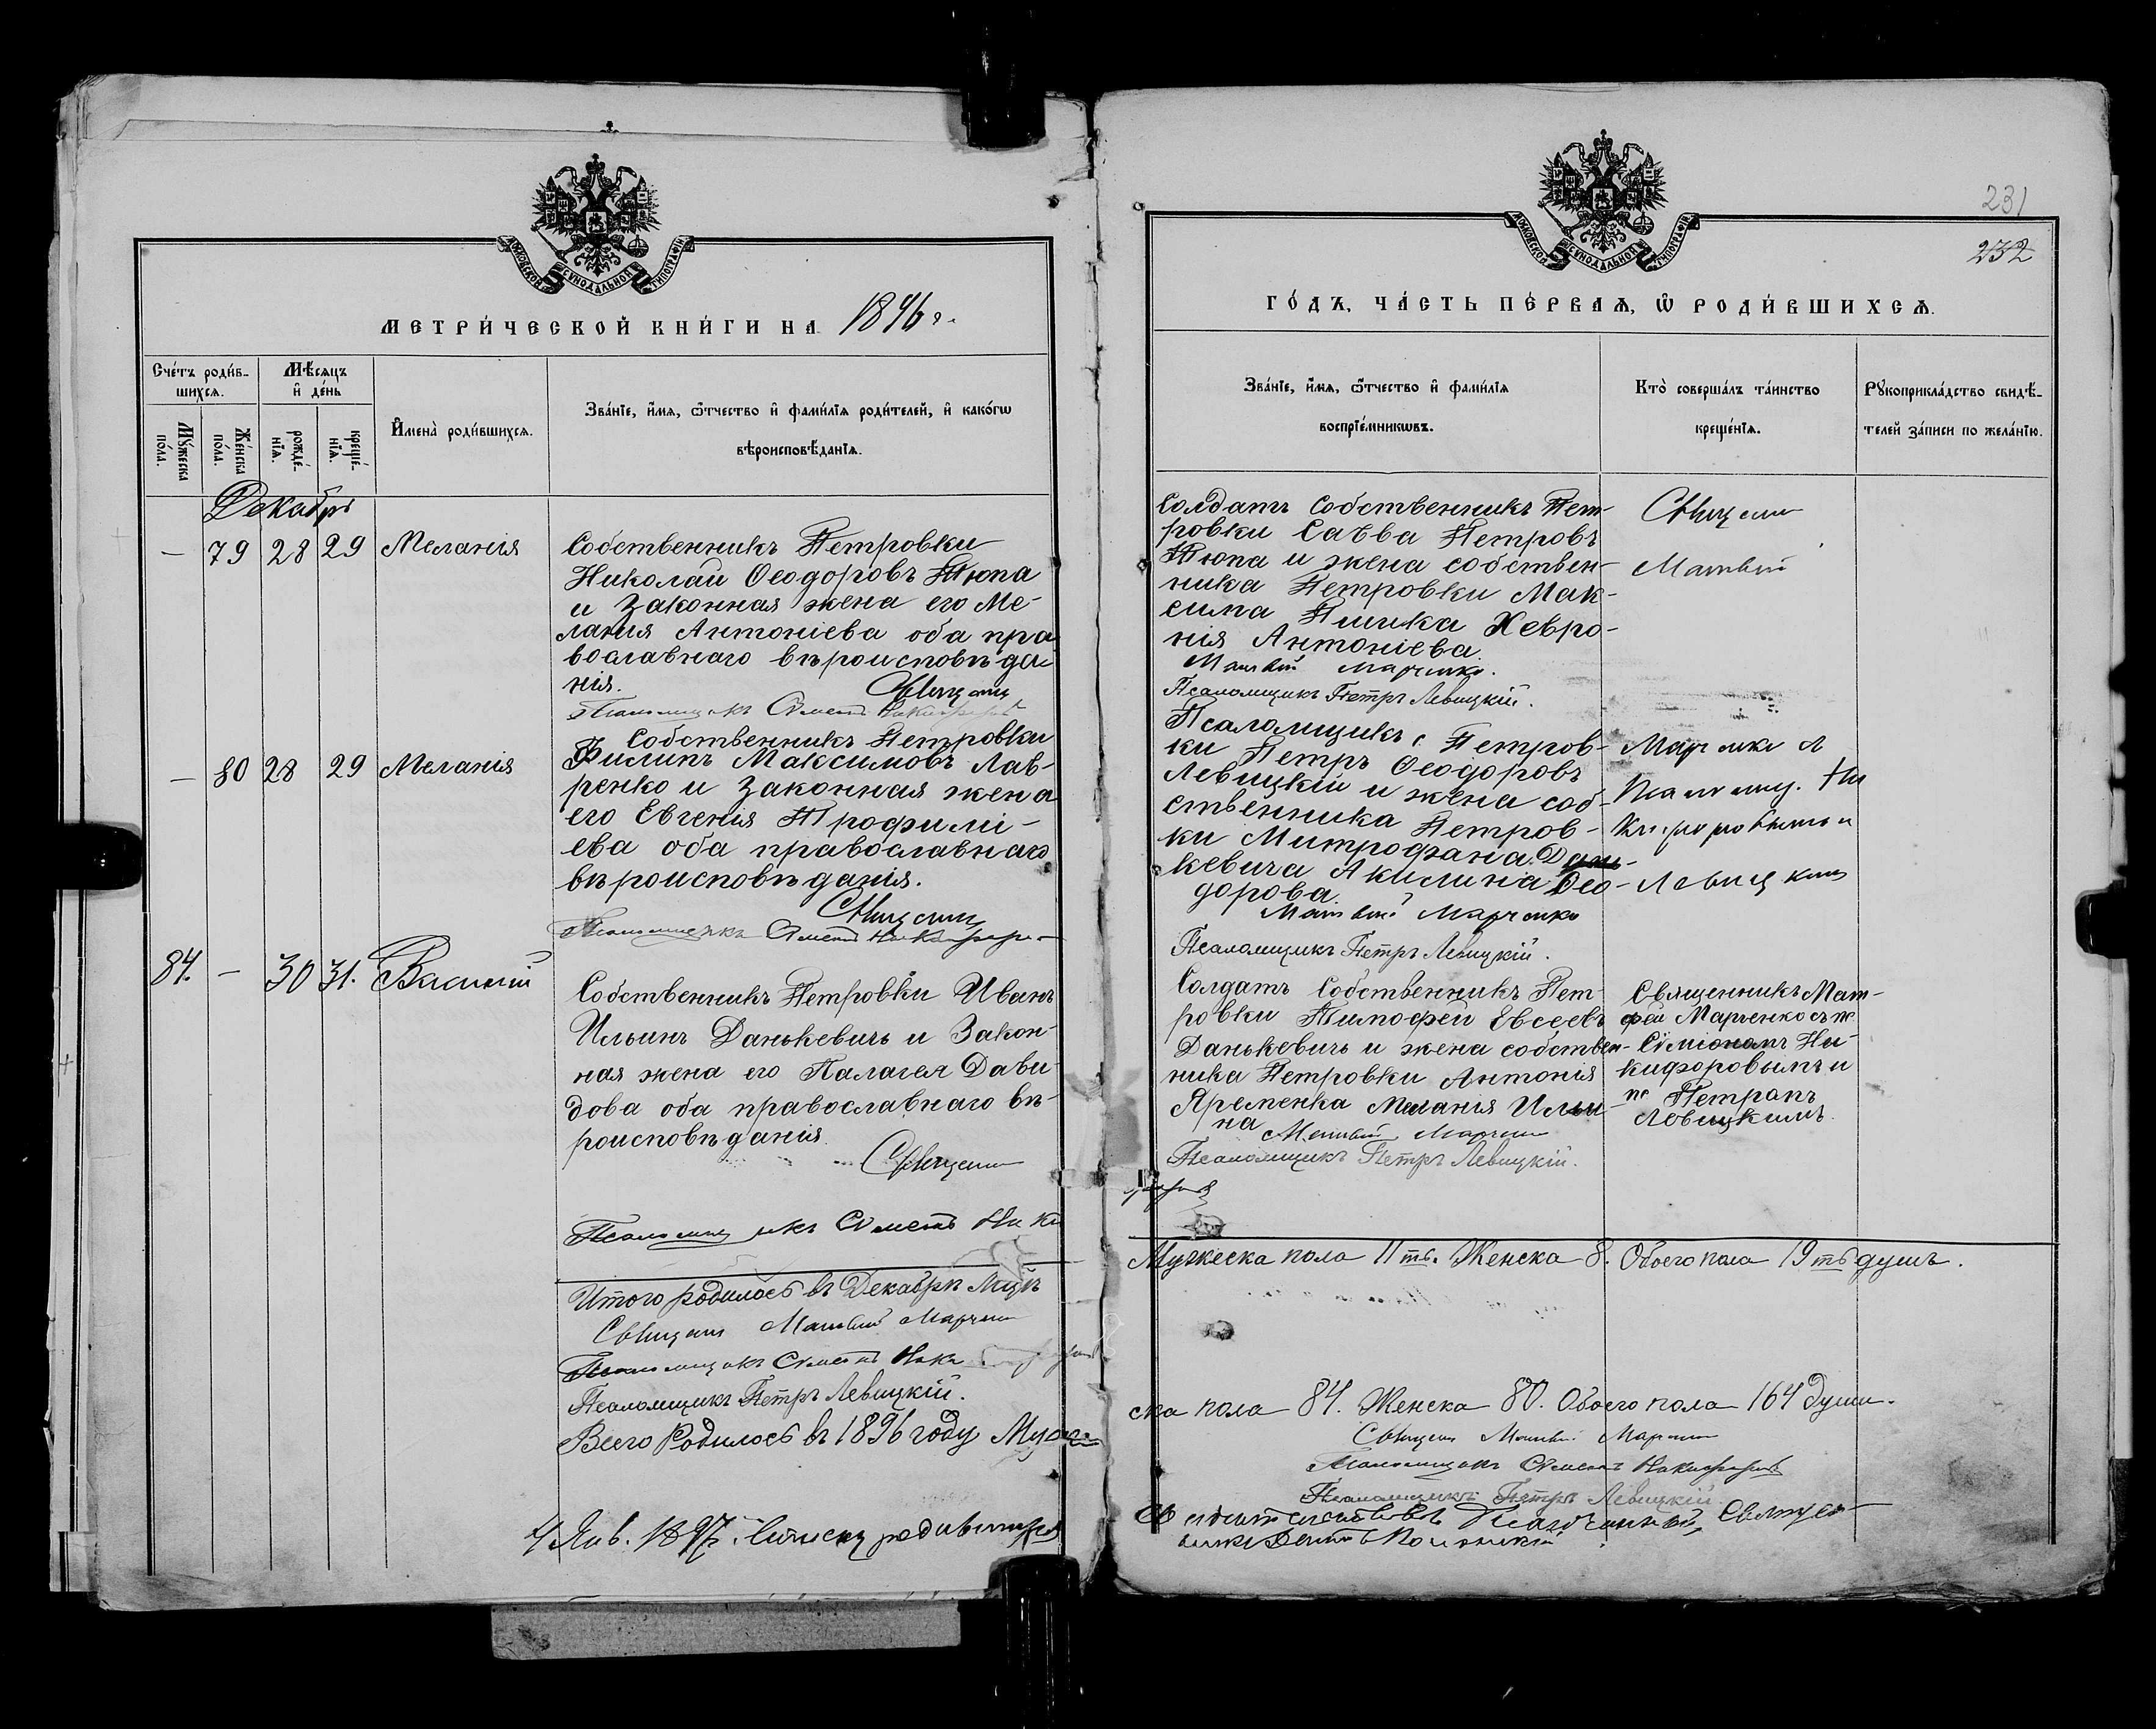 МЕТРИ́ЧЕСКОЙ КНИ́ГИ НА 1896 г.
Сче́тъ роди́в-
шихсѧ.
Мѣ́сяцъ
и҆ де́нь
Мꙋ́жеска
по́ла.
Же́нска
по́ла.
рожде́-
нїѧ.
креще́-
нїѧ.
И҆мена̀ роди́вшихсѧ.
Зва́нїе, и҆́мѧ, ѻ҆́тчество и҆ фами́лїѧ роди́телей, и҆ како́гѡ
вѣроисповѣ́данїѧ.
Декабрь
— 79 28 29 Меланія
Собственникъ Петровки
Николай Ѳеодоровъ Тюпа
и законная жена его Ме-
ланія Антоніева оба пра
вославнаго вѣроисповѣда
нія.
Псаломщикъ Сѵмеонъ Никифоровъ
— 80 28 29 Меланія
Собственникъ Петровки
Филипъ Максимовъ Лав-
ренко и законная жена
его Евгенія Трофимі-
ева оба православнаго
вѣроисповѣданія.
Псаломщикъ Сѵмеонъ Никифоро
84. — 30 31. Василій
Собственникъ Петровки Иванъ
Ильинъ Данькевичъ и Закон-
ная жена его Палагея Дави-
дова оба православнаго вѣ-
роисповѣданія
Псаломщикъ Сѵмеонъ Ники
Итого родилось въ Декабрѣ Мцѣ
Матвій Марченко
Псаломщикъ Сѵмеонъ Ники
Псаломщикъ Петръ Левицкій.
Всего Родилось въ 1896 году Муже
4 Янв. 1897 г. родившихся
231
232
ГО́ДЪ, ЧА́СТЬ ПЕ́РВАѦ, Ѡ҆ РОДИ́ВШИХСѦ.
Зва́нїе, и҆́мѧ, ѻ҆́тчество и҆ фами́лїѧ
воспрїе́мникѡвъ.
Кто̀ соверша́лъ та́инство
креще́нїѧ.
Рꙋкоприкла́дство свидѣ́-
телей за́писи по жела́нїю.
Солдатъ Собственникъ Пет-
ровки Савва Петровъ
Тюпа и жена собствен-
ника Петровки Мак-
сима Пшика Хевро-
нія Антоніева
Матвій Марченко.
Псаломщикъ Петръ Левицкій.
Матвій
Псаломщикъ Петров-
ки Петръ Ѳеодоровъ
Левицкій и жена соб-
ственника Петров-
ки Митрофана Дань-
кевича Акилина Ѳео-
дорова.
Матвій Марченко
Псаломщикъ Петръ Левицкій.
Марченко
Псаломщ. Ни
кифоровымъ и
Левицким
Солдатъ Собственникъ Пет-
ровки Тимофей Евсеевъ
Данькевичъ и жена собствен-
ника Петровки Антонія
Яременка Миланія Ильи-
на
Матвій Марченко
Псаломщикъ Петръ Левицкій.
Священникъ Мат-
фей Марченко съ пс
Сѵмеономъ Ни-
кифоровымъ и
пс Петромъ
Левицкимъ.
Мужеска пола 11ть. Женска 8. Обоего пола 19ть душъ.
ска пола 84. Женска 80. Обоего пола 164 души.
Матвій Марченко
Псаломщикъ Сѵмеонъ Никифоровъ
Псаломщикъ Петръ Левицкій.
Благочинный, Священ-